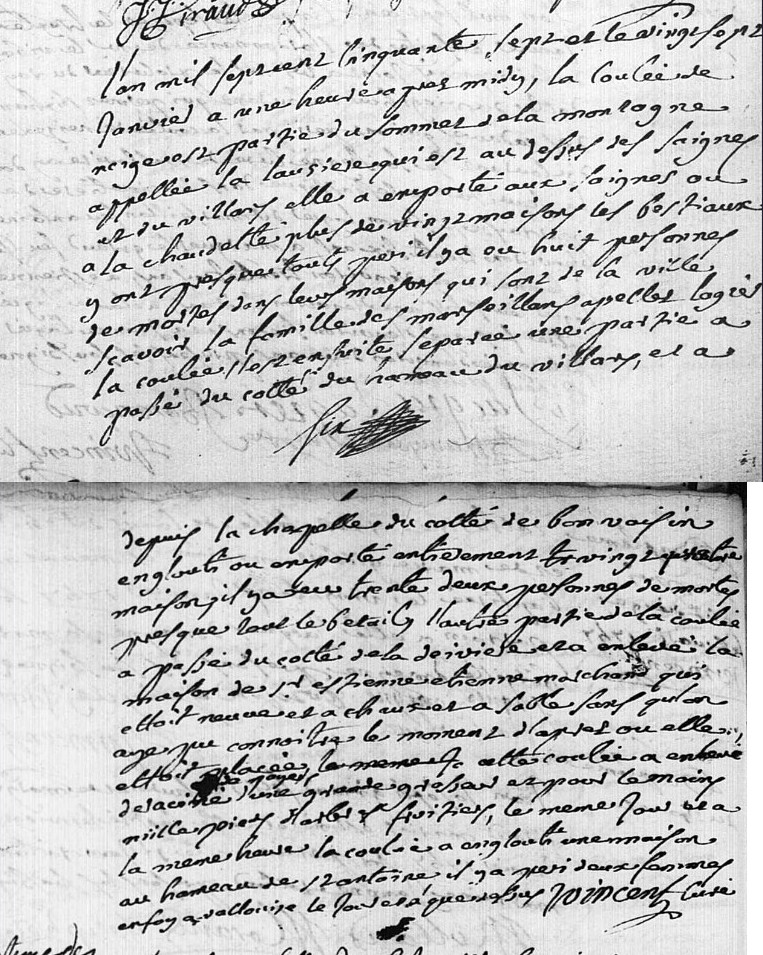 J Giraud
L'an mil sept cent cinquante sept et le vingt sept
Janvier a une heure apres midy, la coulée de
neige est partie du sommet de la montagne
appellée la lausiere qui est au dessus des saignes
et du villars elle a emporté aux saignes ou
a la chaudette plus de vingt maisons les bestiaux
y ont presque touts peri il y a eu huit personnes
de mortes dans leurs maisons qui sont de la ville
scavoir la famille des marseillans appellet logier
la coulée s'est ensuite separée une partie a
passé du colté du hameau du villars, et a
depuis la chapelle du colté de bon voisin
englouti ou emporté entierement vingt quatre
maison, il y a eu trente deux personnes de mortes
presque tout le betail, l'autre partie de la coulée
a passé du colté de la riviere et a enlevé la
maison de sr estienne etienne marchand qui
ettoit neuve et a chaux et a sable sans qu'on
aye pu connoitre le moment d'apres ou elle
ettoit placée, le meme cette coulée a enlevé
deraciné noyers d'une grande grosseur et pour le moins
mille pieds d'arbres fruitiers, le meme Jour et a
la meme heure la coulée a englouti une maison
au hameau de st antoine il y a peri deux femmes
en foy a vallouise le Jour et a que dessus Vincent Curé